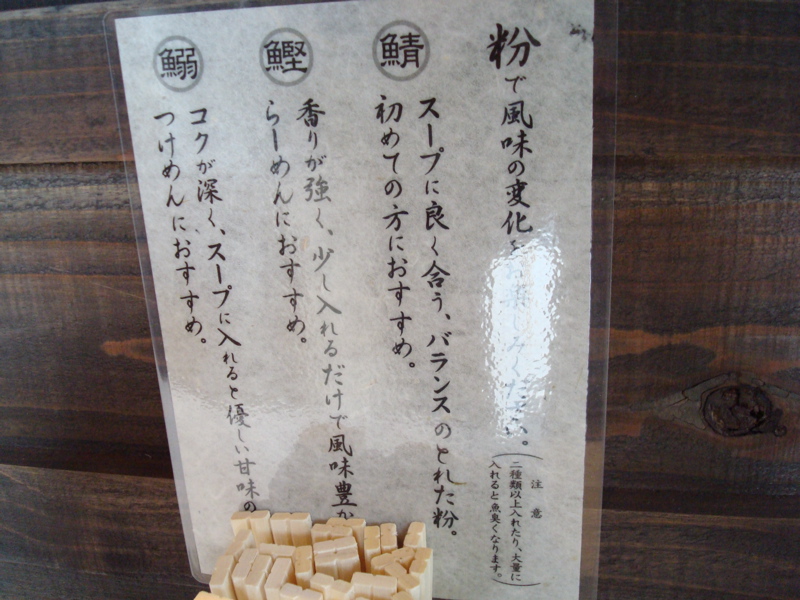 粉で風味の変化をお楽しみください。
注意
二種類以上入れたり、大量に
入れると魚臭くなります。
鯖
スープに良く合う、バランスのとれた粉。
初めての方におすすめ。
鰹
香りが強く、少し入れるだけで風味豊か
らーめんにおすすめ。
鰯
コクが深く、スープに入れると優しい甘味の
つけめんにおすすめ。